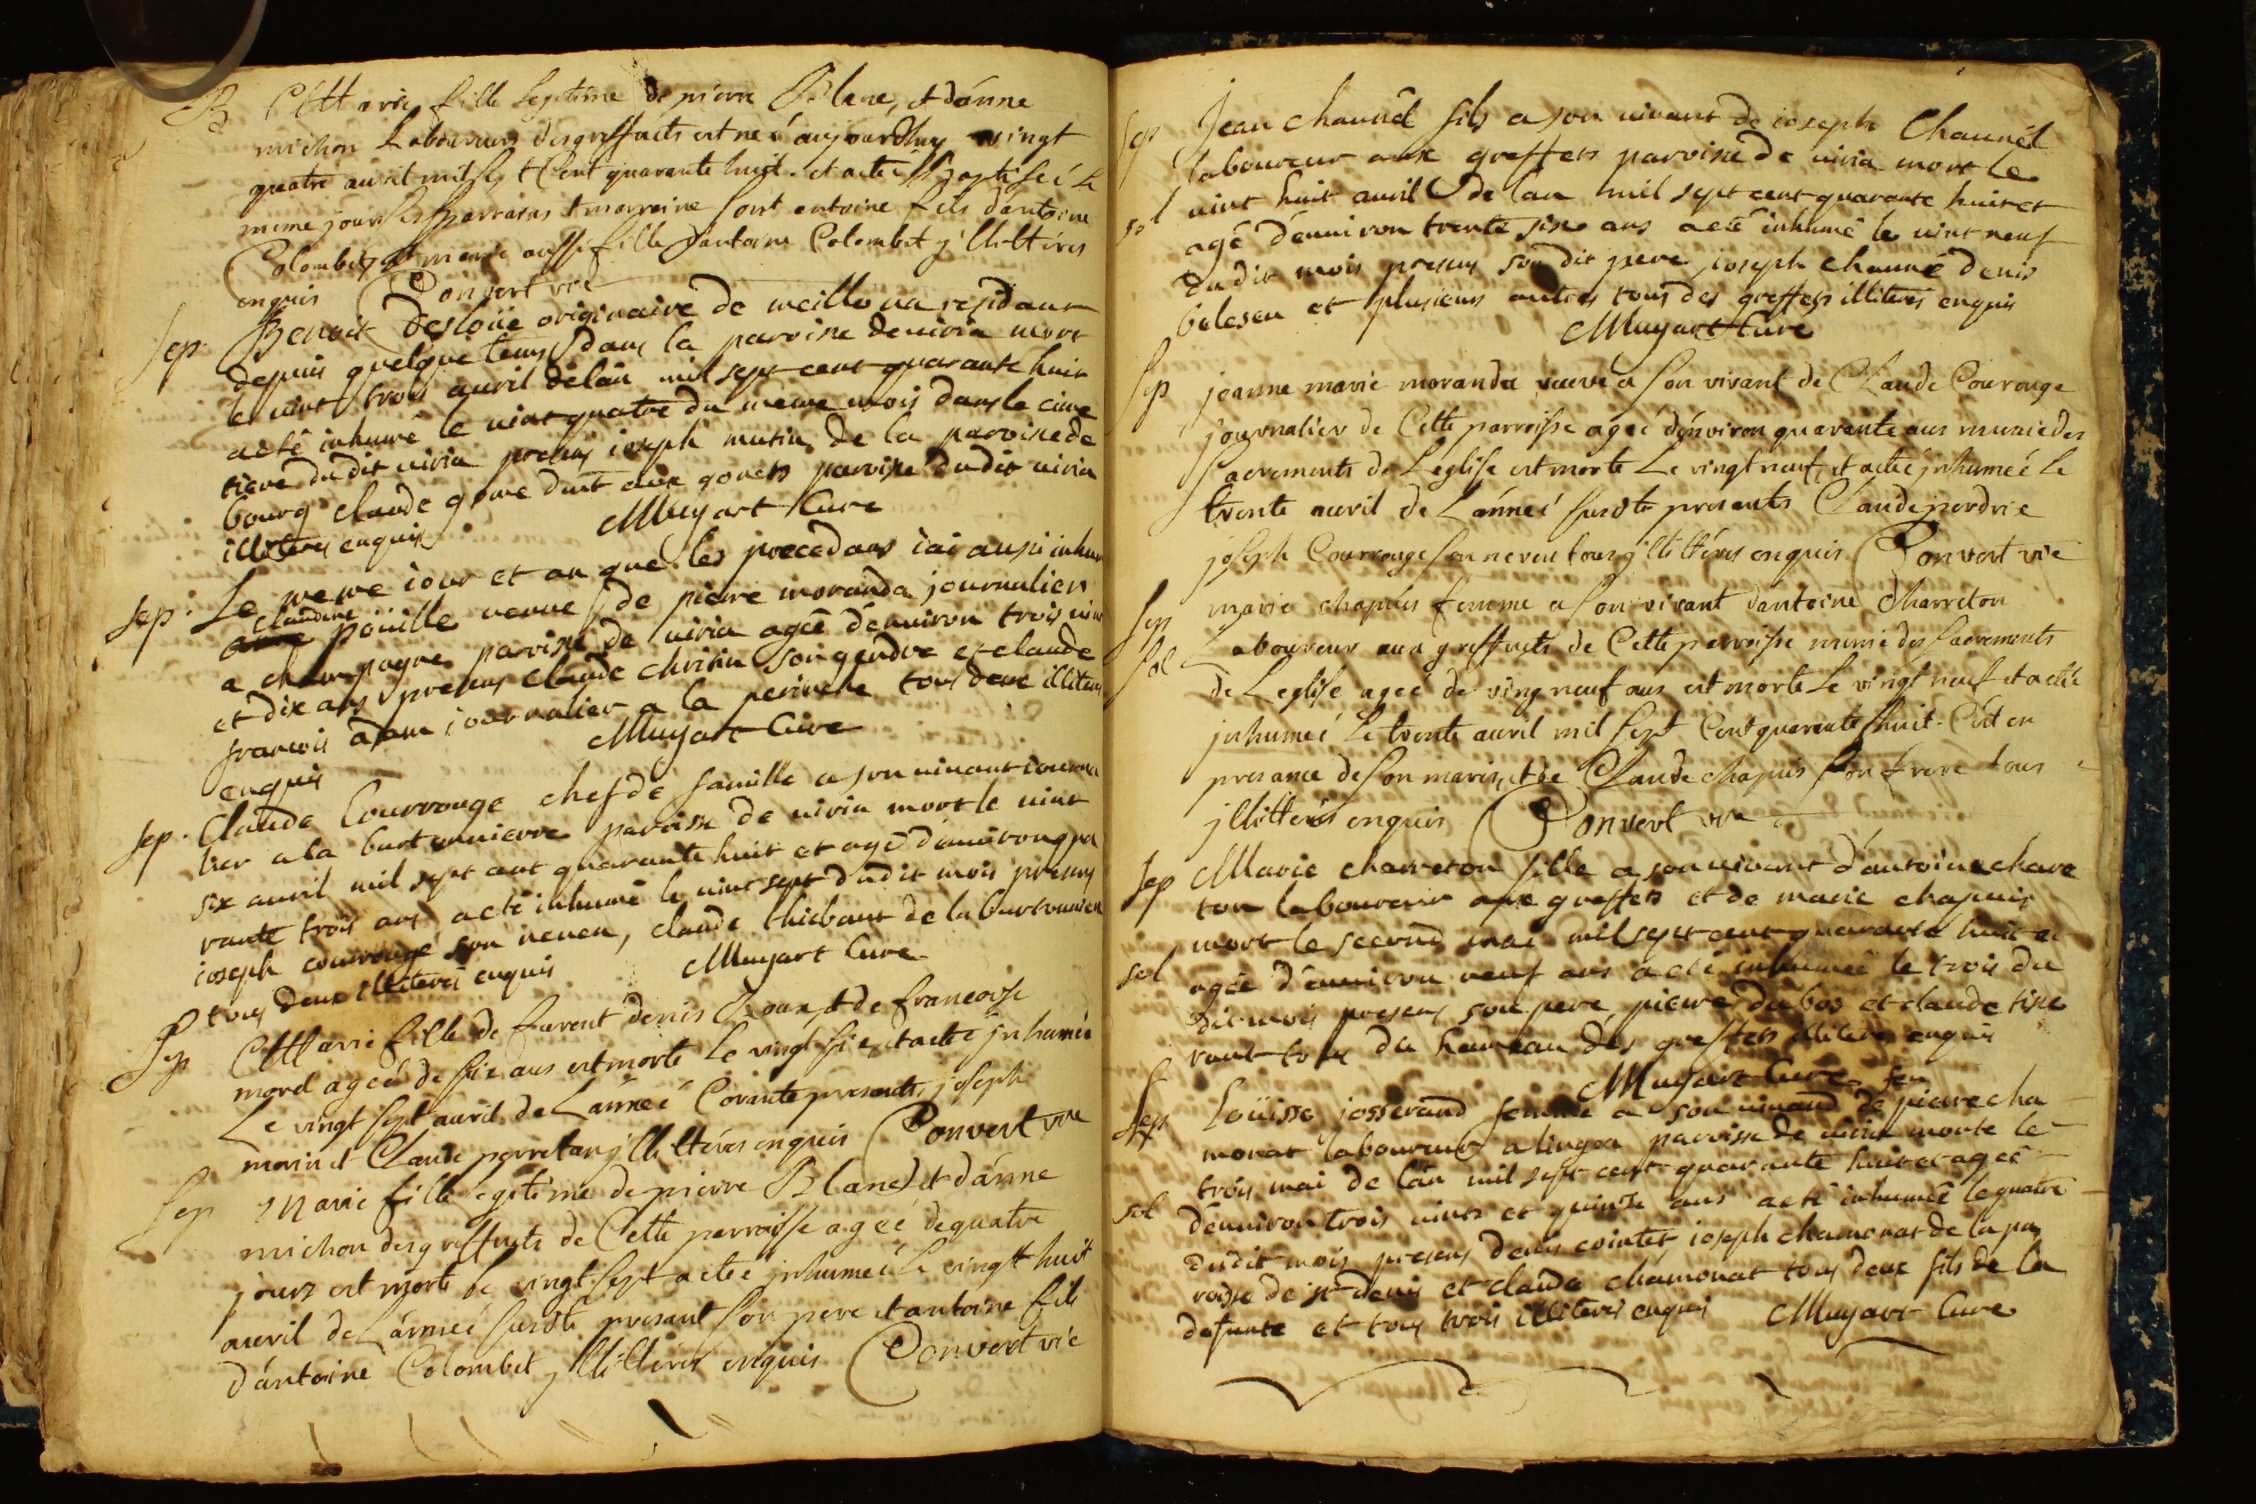 B Marie fille legitime de pierre Blanc, et d'anne
michon Laboureurs des greffets est neé aujourdhuy vingt
quatre avril mil sept Cent quarante huit. et a eté Baptiseé le
meme jour ses parrains et marreine sont antoine fils d'antoine
Colombet, et marie aussi fille d'antoine Colombet jllittérés
enquis Convert vic
sep. Benoit Desloüe originaire de meillona residant
depuis quelque tems dans la paroisse de viria mort
le vint trois avril de lan mil sept cent quarante huit
a eté inhumé le vint quatre du meme mois dans le cime
tiere du dit viria presens joseph mutin de la paroisse de
bourg claude aux gonets paroisse du dit viria
illiteres enquis Muyart Cure
sep. Le meme iour et an que les precedans i'ai aussi inhum
claudine poüille veuve de pierre moranda journalier
a champagne paroisse de viria ageé d'environ trois vint
et dix ans presens claude chrisin son gendre et claude
francois adam iournalier a la perinche tous deux illiteres
enquis Muyart Cure
sep. Claude Courrouge chef de famille a son vivant iourna
lier a la paroisse de viria mort le vint
six avril mil sept cent quarante huit et agé d'environ qua
rante trois ans a eté inhumé le vint sept du dit mois presens
ioseph courrouge son neveu, claude thiebaut de la
tous deux illiteres enquis Muyart Cure
sep Marie fille de furent denis et de francoise
morel ageé de six ans est morte le vingt six, et a eté jnhumeé
Le vingt sept avril de L'anneé Corante presents joseph
morin et Claude perretan jllittérés enquis Convert vic
sep Marie fille legitime de pierre Blanc) et d'anne
michon des greffets de Cette parroisse ageé de quatre
jours est morte le vingt sept a eté jnhumeé le vingt huit
avril de L'anneé susdte presant son pere et antoine fils
d'antoine Colombet jllittérés enquis Convert vic
sep Jean chaunel fils a son vivant de ioseph Chaunel
laboureur aux greffets paroisse de viria mort le
sol vint huit avril de lan mil sept cent quarante huit et
agé d'environ trente six ans a eté inhumé le vint neuf
du dit mois presens son dit pere, ioseph chaunel denis
belesen et plusieurs autres tous des greffets illiteres enquis
Muyart Cure
sep jeanne marie moranda veuve a son vivant de Claude Courouge
journalier de Cette parroisse ageé d'environ quarante ans munie des
sacrements de L'église est morte Le vingt neuf, et a eté jnhumeé le
trente avril de L'anneé susdte presents Claude perdrix
joseph Courrouge son neveu tous jllittérés enquis Convert vic
sep marie chapuis femme a son vivant d'antoine Charreton
sol Laboureur aux greffets de Cette parroisse munie des sacrements
de L'eglise ageé de vingt neuf ans est morte Le vingt neuf et a eté
jnhumeé le trente avril mil sept Cent quarante huit. C'est en
presance de son maris, et de Claude chapuis son frere tous
jllittérés enquis Convert vic
sep Marie charreton fille a son vivant d'antoine chare
ton laboureur aux greffets et de marie chapuis
mort le second mai mil sept cent quarante huit et
sol ageé d'environ neuf ans a eté inhumeé le trois du
dit mois presens son pere, pierre dubos et claude sixe
rant tous du hameau des greffets illiteres enquis
Muyart Cure
sep Loüisse josserand femme a son vivant de feu pierre cha
monat laboureur a lingea paroisse de viria morte le
trois mai de lan mil sept cent quarante huit et ageé
sol d'environ trois vints et quinze ans a eté inhumeé le quatre
du dit mois presens denis cointet, ioseph chamonat de la pa
roisse de st denis et claude chamonat tous deux fils de la
defunte et tous trois illiteres enquis Muyart Cure